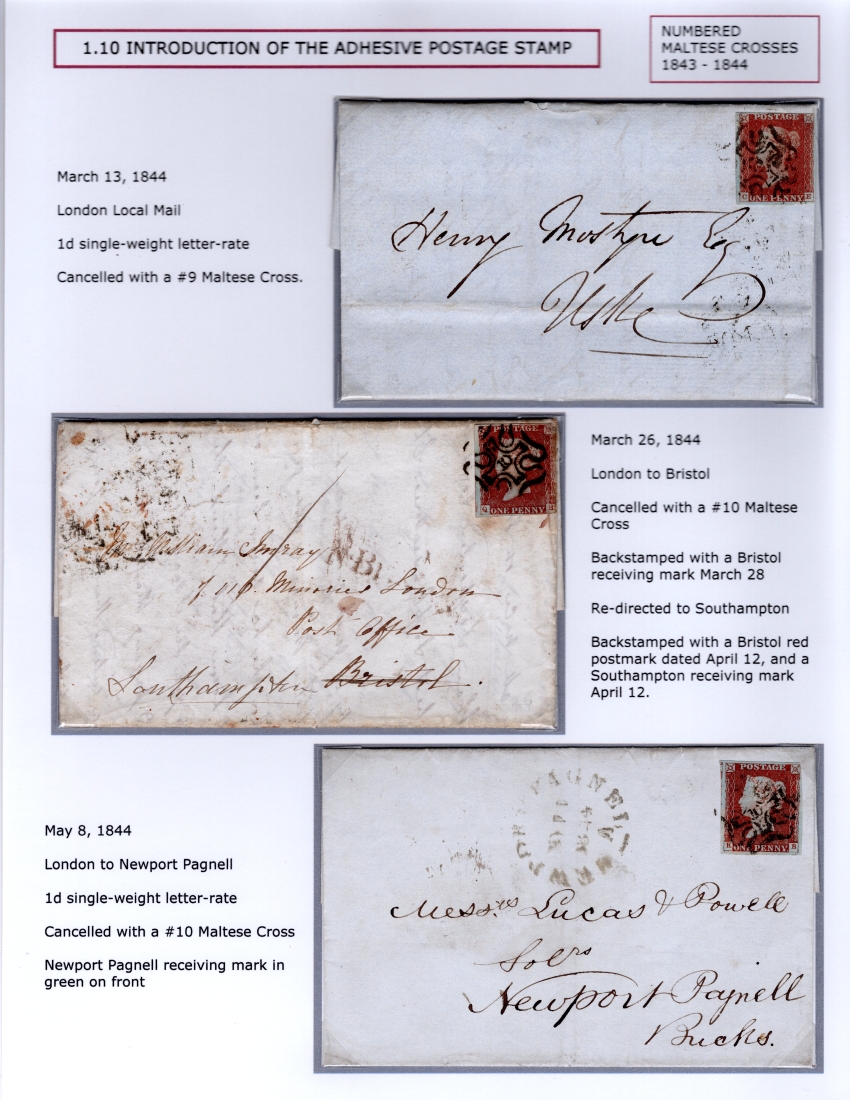 1.10 INTRODUCTION OF THE ADHESIVE POSTAGE STAMP
NUMBERED
MALTESE CROSSES
1843 - 1844
March 13, 1844
London Local Mail
1d single-weight letter-rate
Cancelled with a #9 Maltese Cross.
POSTAGE
C E
ONE PENNY
Henry Mostyn Esq
Uske
POSTAGE
ONE PENNY
Mr William Imray
116 Minories London
Post Office
Southampton Bristol.
March 26, 1844
London to Bristol
Cancelled with a #10 Maltese
Cross
Backstamped with a Bristol
receiving mark March 28
Re-directed to Southampton
Backstamped with a Bristol red
postmark dated April 12, and a
Southampton receiving mark
April 12.
May 8, 1844
London to Newport Pagnell
1d single-weight letter-rate
Cancelled with a #10 Maltese Cross
Newport Pagnell receiving mark in
green on front
NEWPORT PAGNELL
POSTAGE
ONE PENNY
Messrs Lucas & Powell
Solrs
Newport Pagnell
Bucks.